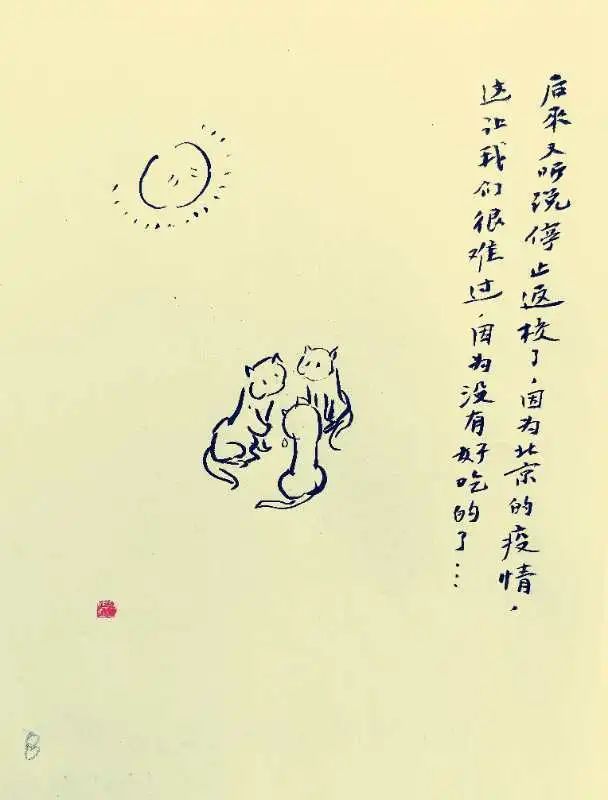 后來又听说停止返校了，因为北京的疫情，
这让我们很难过，因为没有好吃的了...
8